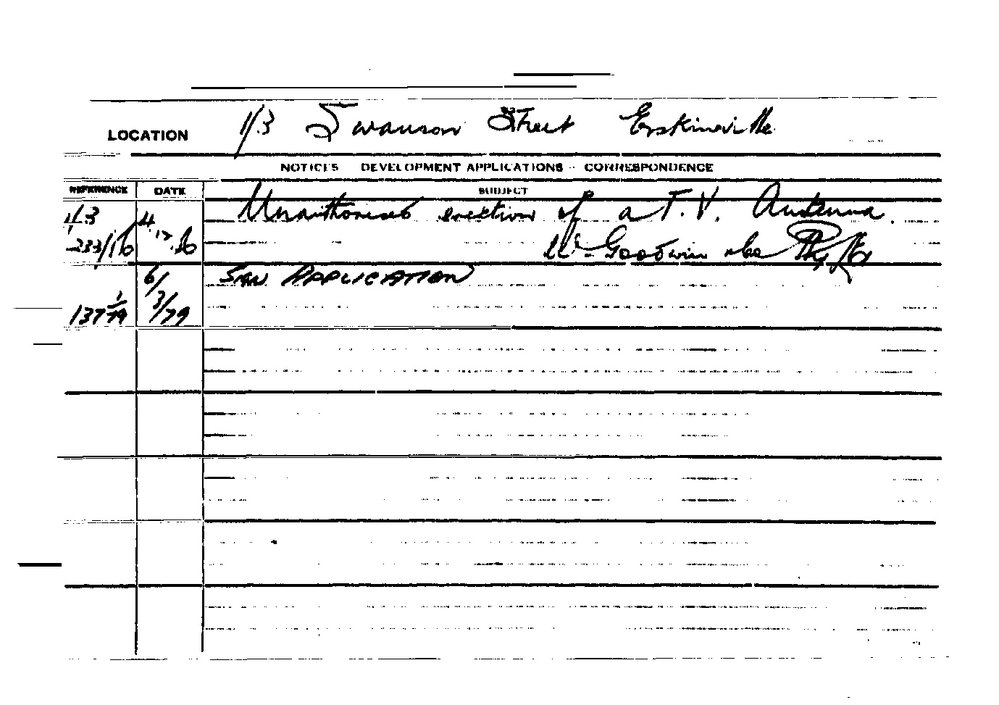 LOCATION 1/3 Swanson Street Erskineville
NOTICES DEVELOPMENT APPLICATIONS - CORRESPONDENCE
REFERENCE DATE SUBJECT
4.3 Unauthorised erection of a T.V. Antenna.
233/16 4.12.16 Mr Goodwin
6/3/79 SIGN APPLICATION
137 1/79